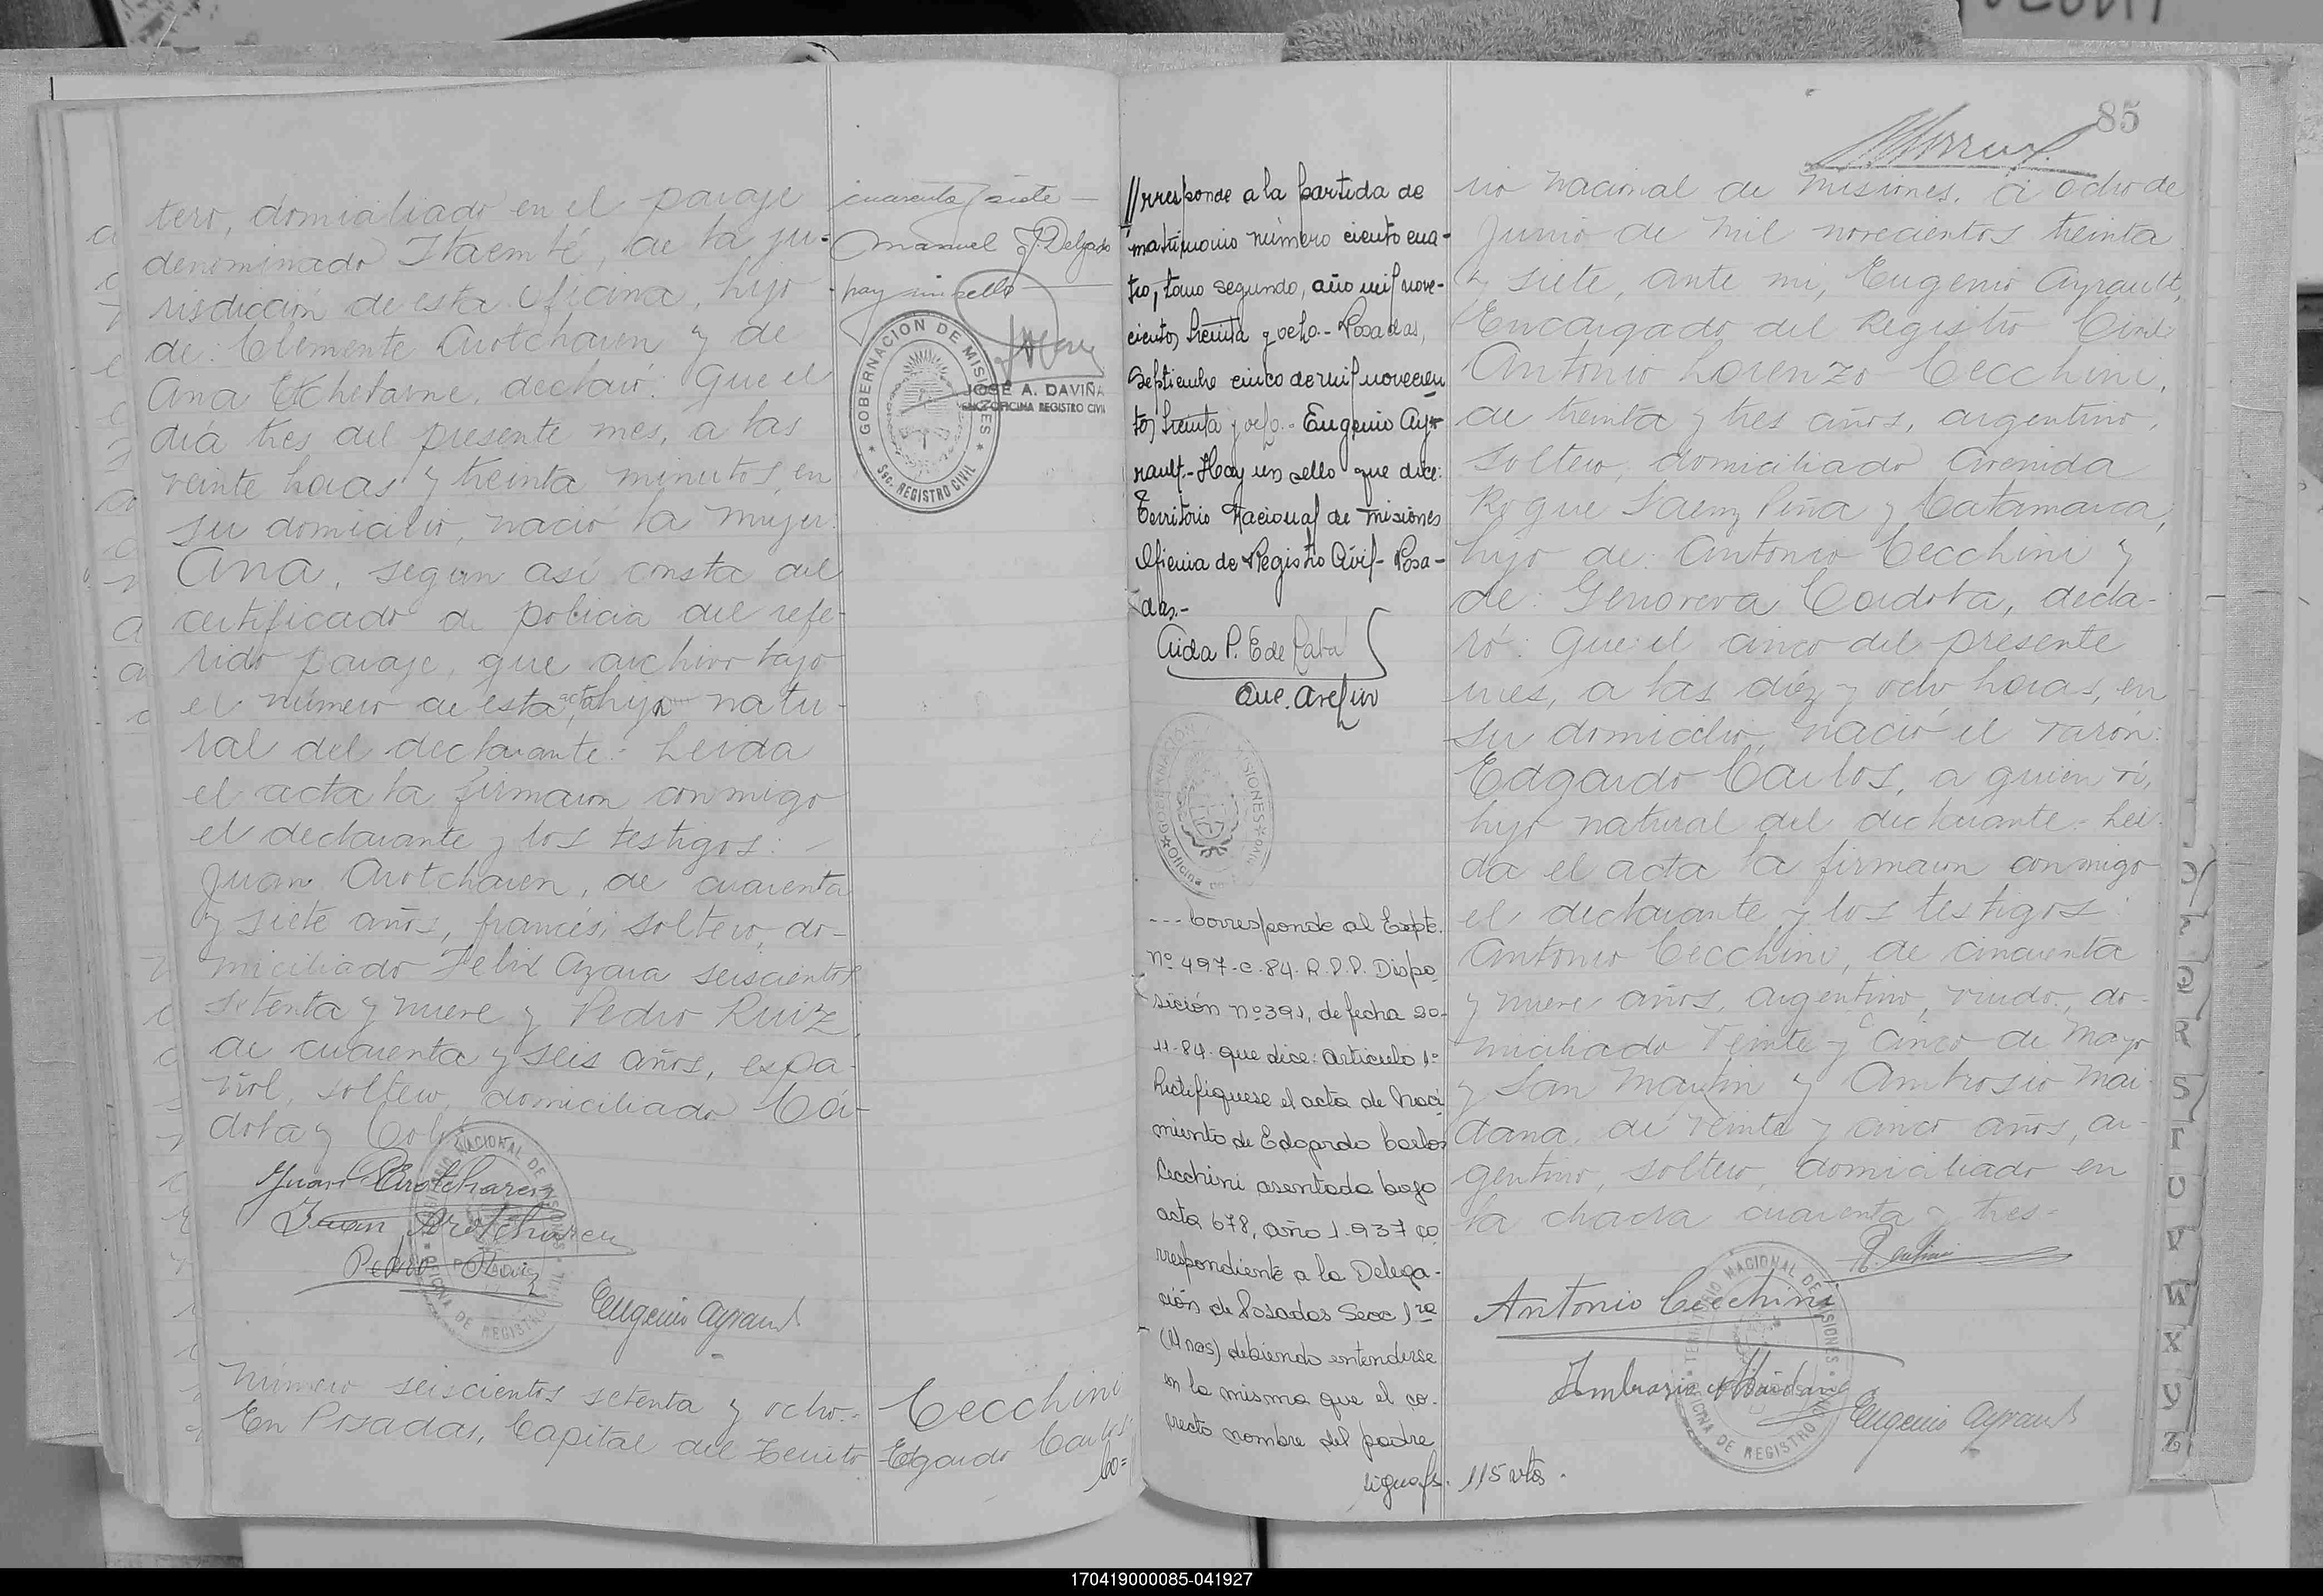 tero, domiciliado en el paraje
denominado Itaembé, de la ju-
risdicción de esta Oficina, hijo
de: Clemente Arotcharen y de
Ana Etchetarne, declaró: Que el
día tres del presente mes, a las
veinte horas y treinta minutos, en
su domicilio, nació la mujer:
Ana, según así consta del
certificado de policía del refe-
rido paraje, que archivo bajo
el número de esta acta, hija natu-
ral del declarante.- Leida
el acta la firmaron conmigo
el declarante y los testigos:
Juan Arotcharen, de cuarenta
y siete años, francés, soltero, do-
miciliado Felix Azara seiscientos
setenta y nueve y Pedro Ruiz,
de cuarenta y seis años, espa-
ñol, soltero, domiciliado Cór-
doba y Colón
Juan Arotcharen
Juan Arotcharen
Pedro Ruiz
Eugenio Ayrault
TERRITORIO NACIONAL DE MISIONES
OFICINA DE REGISTRO CIVIL
Número seiscientos setenta y ocho.-
En Posadas, Capital del Territo-
cuarenta y siete —
Manuel J. Delgado
hay un sello
GOBERNACION DE MISIONES
Sec. REGISTRO CIVIL
JOSÉ A. DAVIÑA
ENC. OFICINA REGISTRO CIVIL
Cecchini
Edgardo Carlos
Co=
//rresponde a la partida de
matrimonio número ciento cua-
tro, tomo segundo, año mil nove-
cientos treinta y ocho.- Posadas,
Septiembre cinco de mil novecien
tos treinta y ocho.- Eugenio Ay-
rault.- Hay un sello que dice:
Territorio Nacional de Misiones
Oficina de Registro Civil- Posa-
das.-
Aida P. E de
Aux. Archivo
GOBERNACION MISIONES
Oficina
--- Corresponde al Expte.
Nº 497-C-84. R.P.P. Dispo
sición nº 391, de fecha 20-
11-84 que dice: Artículo 1º
Rectifíquese el acta de Naci
miento de Edgardo Carlos
Cecchini asentada bajo
acta 678, año 1.937 co
rrespondiente a la Delega-
ción de Posadas Secc 1ra
(Mnes) debiendo entenderse
en la misma que el co-
rrecto nombre del padre
sigue fs. 115 vta.
85
rio nacional de Misiones, a ocho de
Junio de mil novecientos treinta
y siete, ante mi, Eugenio Ayrault,
Encargado del Registro Civil
Antonio Lorenzo Cecchini,
de treinta y tres años, argentino,
soltero, domiciliado Avenida
Roque Saenz Peña y Catamarca,
hijo de: Antonio Cecchini y
de: Genoveva Cordoba, decla-
ró: Que el cinco del presente
mes, a las diéz y ocho horas, en
su domicilio, nació el varón:
Edgardo Carlos, a quien ví,
hijo natural del declarante.- Lei-
da el acta la firmaron conmigo
el declarante y los testigos:
Antonio Cecchini, de cincuenta
y nueve años, argentino, viudo, do-
miciliado Veinte y cinco de Mayo
y San Martín y Ambrosio Mai-
dana, de veinte y cinco años, ar-
gentino, soltero, domiciliado en
la chacra cuarenta y tres.-
Antonio Cecchini
Ambrosio Maidana
Eugenio Ayrault
TERRITORIO NACIONAL DE MISIONES
OFICINA DE REGISTRO CIVIL
Q
R
S
T
U
V
W
X
Y
Z
170419000085-041927